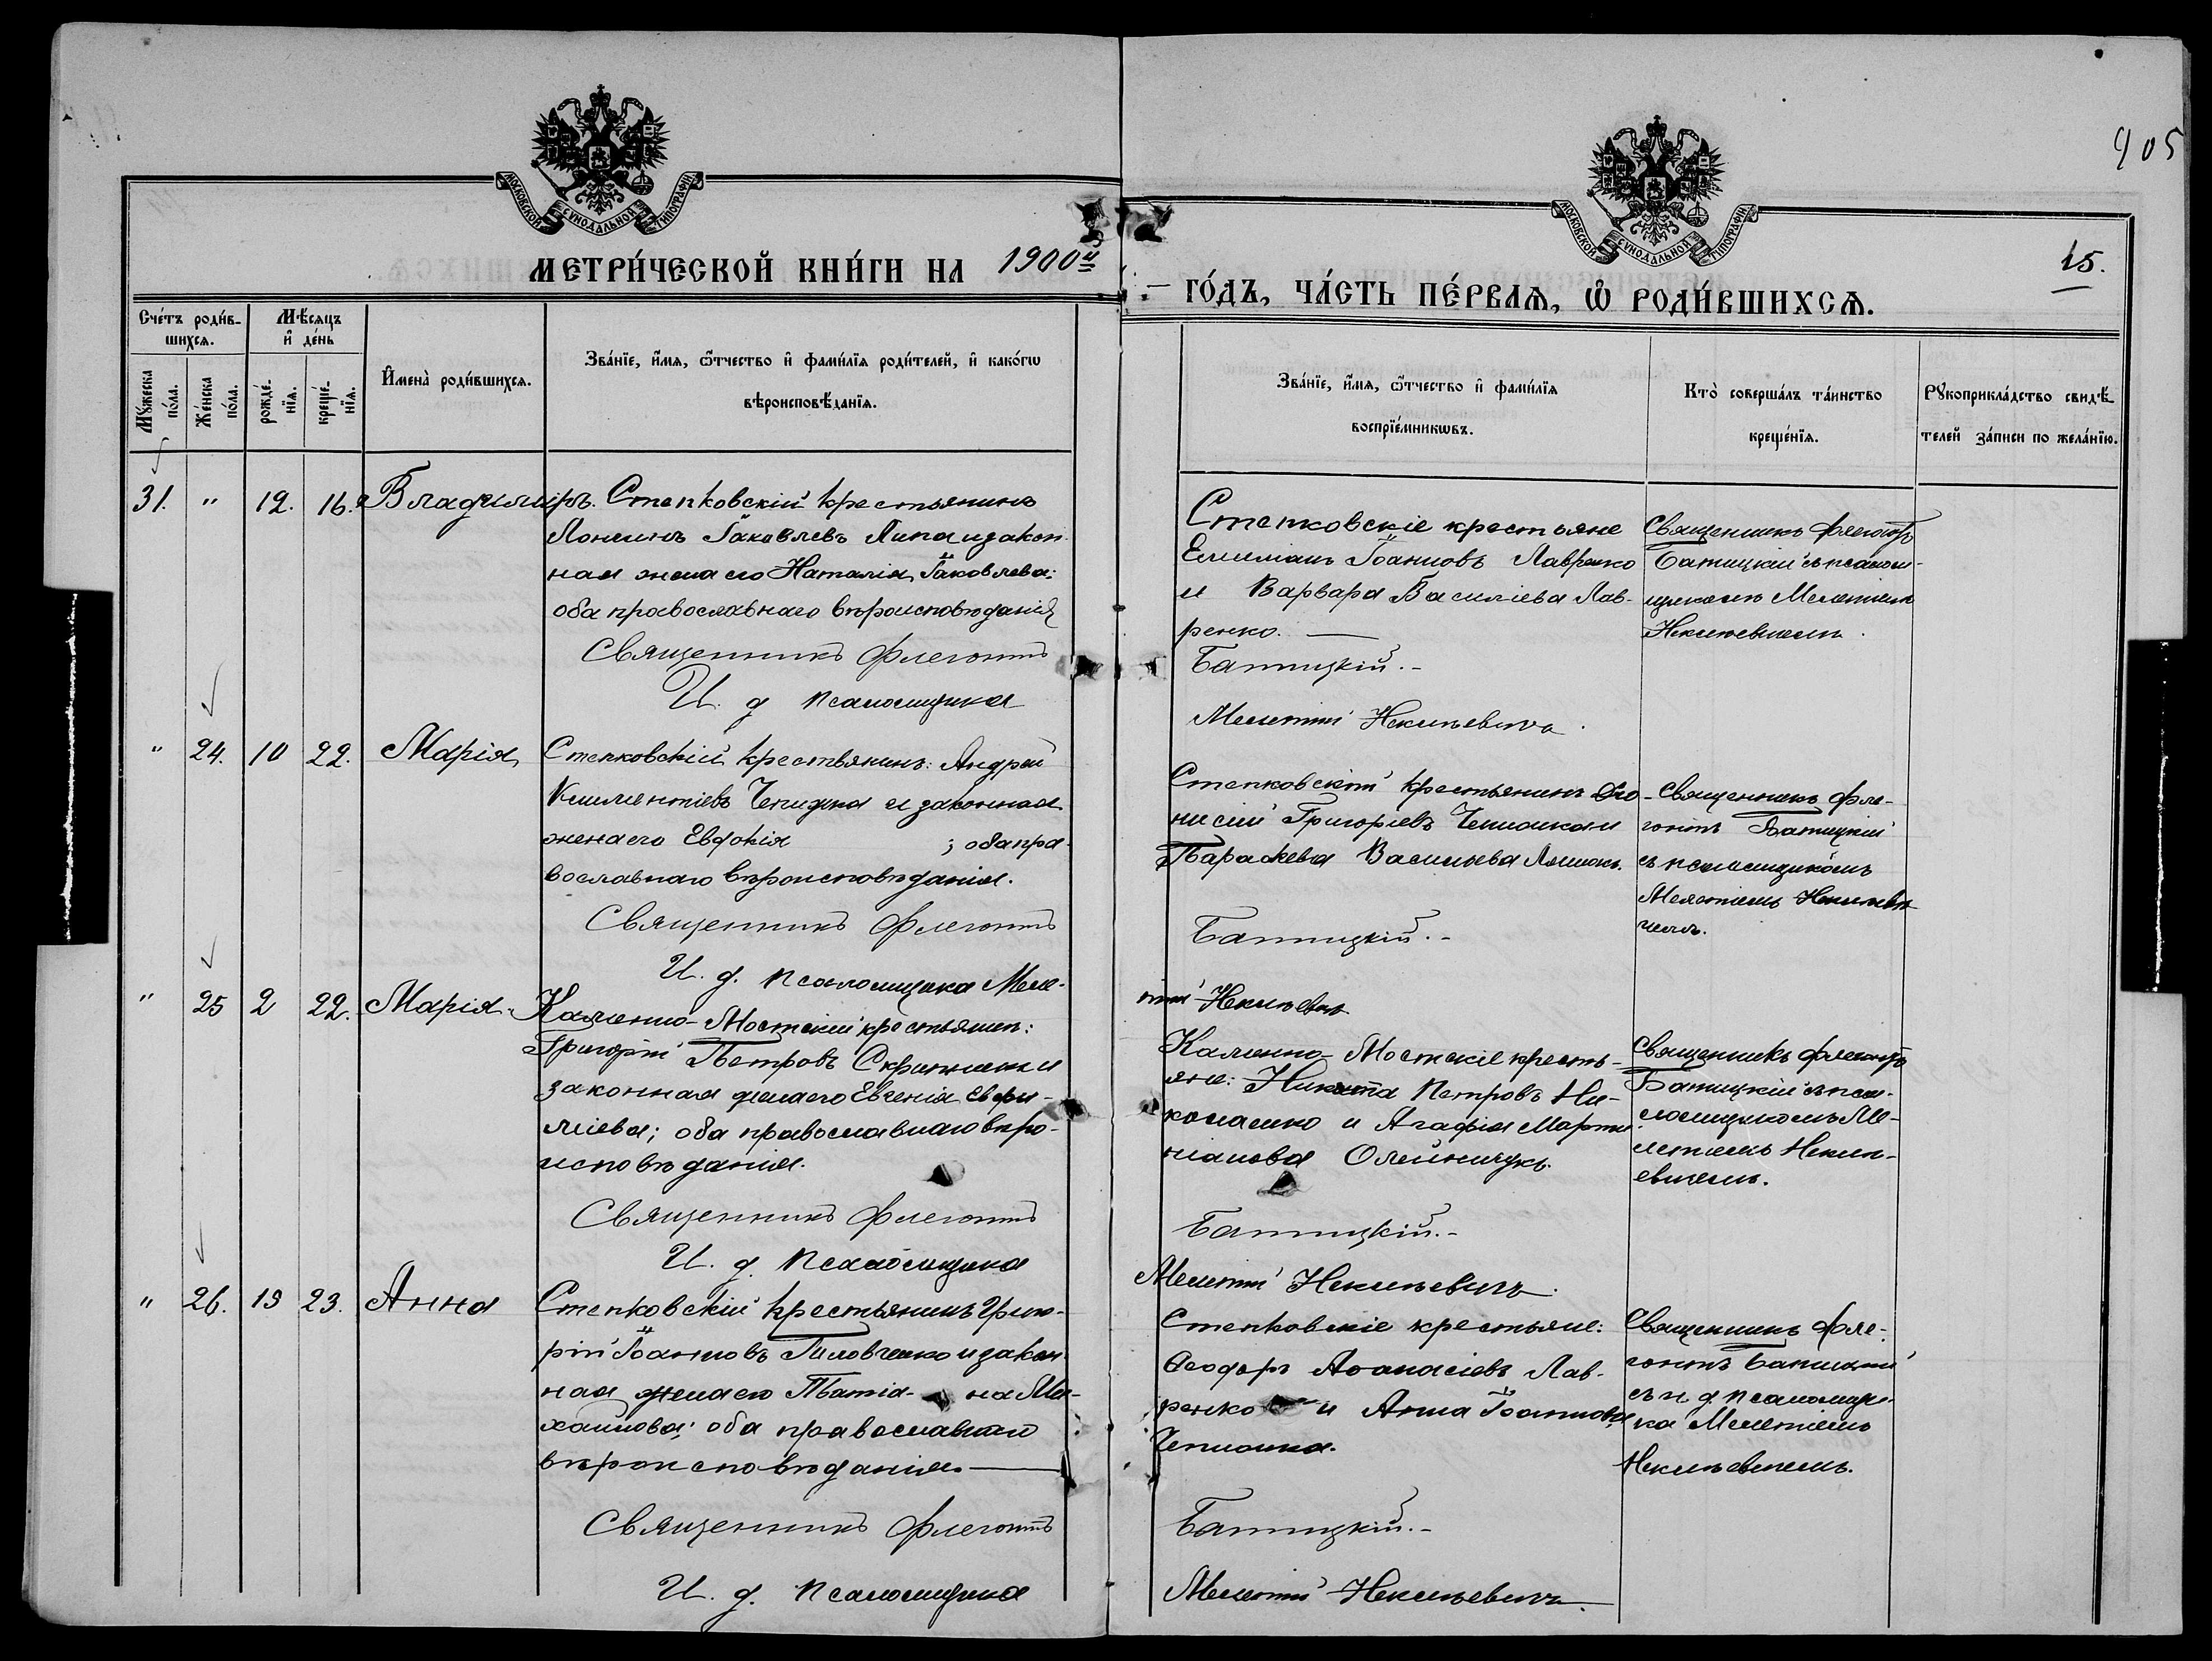 905
МОСКОВСКОЙ СѴНОДАЛЬНОЙ ТИПОГРАФІИ
МОСКОВСКОЙ СѴНОДАЛЬНОЙ ТИПОГРАФІИ
МЕТРИ́ЧЕСКОЙ КНИ́ГИ НА 1900й
ГО́ДЪ, ЧА́СТЬ ПЕ́РВАѦ, Ѽ РОДИ́ВШИХСѦ.
15.
Сче́тъ роди́в-
шихсѧ.
Мѣ́сѧцъ
и҆ де́нь
Мꙋ́жеска по́ла.
Же́нска по́ла.
рожде́-нїѧ.
креще́-нїѧ.
И҆мена̀ роди́вшихсѧ.
Зва́нїе, и҆́мѧ, ѻ҆́тчество и҆ фами́лїѧ роди́телей, и҆ како́гѡ
вѣроисповѣ́данїѧ.
Зва́нїе, и҆́мѧ, ѻ҆́тчество и҆ фами́лїѧ
воспрїе́мникѡвъ.
Кто̀ соверша́лъ та́инство
креще́нїѧ.
Рꙋкоприкла́дство свидѣ́-
телей за́писи по жела́нїю.
31. " 12. 16. Владиміръ. Степковскій крестьянинъ
Лонгинъ Іаковлевъ Липа и закон-
ная жена его Наталія Іаковлева;
оба православнаго вѣроисповѣданія
Священникъ Флегонтъ
И. д. псаломщика
Степковскіе крестьяне
Емиліанъ Іоанновъ Лавренко
и Варвара Василіева Лав-
ренко.
Батицкій.
Мелетій Некиневичъ.
Священникъ Флегонтъ
Батицкій съ псалом-
щикомъ Мелетіемъ
Некиневичемъ.
" 24. 10 22. Марія Степковскій крестьянинъ: Андрей
Климентіевъ Чепижка и законная
жена его Евдокія ; оба пра-
вославнаго вѣроисповѣданія.
Священникъ Флегонтъ
И. д. псаломщика Меле-
Степковскій крестьянинъ Діо-
нисій Григоріевъ и
Параскева Васильева
Батицкій.
тій Некиневичъ
Священникъ Фле-
гонтъ Батицкій
съ псаломщикомъ
Мелетіемъ Некиневи-
чемъ.
" 25 2 22. Марія. Каменно-Мостскій крестьянин:
Григорій Петровъ Скрипникъ и
законная жена его Евгенія Евфи-
міева; оба православнаго вѣро-
исповѣданія.
Священникъ Флегонтъ
И. д. псаломщика
Каменно-Мостскіе кресть-
яне: Никита Петровъ Ни-
коленко и Агафія Марти-
ніанова Олейничукъ.
Батицкій.
Мелетій Некиневичъ.
Священникъ Флегонтъ
Батицкій съ пса-
ломщикомъ Ме-
летіемъ Некин-
евичемъ.
" 26. 19 23. Анна Степковскій крестьянинъ Григо-
рій Іоанновъ Головченко и закон-
ная жена его Татіа- на Ми-
хайлова; оба православнаго
вѣроисповѣданія.
Священникъ Флегонтъ
И. д. псаломщика
Степковскіе крестьяне:
Ѳеодоръ Аѳанасіевъ Лав-
ренко и Анна Іоаннова
Батицкій.
Мелетій Некиневичъ.
Священникъ Фле-
гонтъ Батицкій
съ и. д. псаломщи-
ка Мелетіемъ
Некиневичемъ.